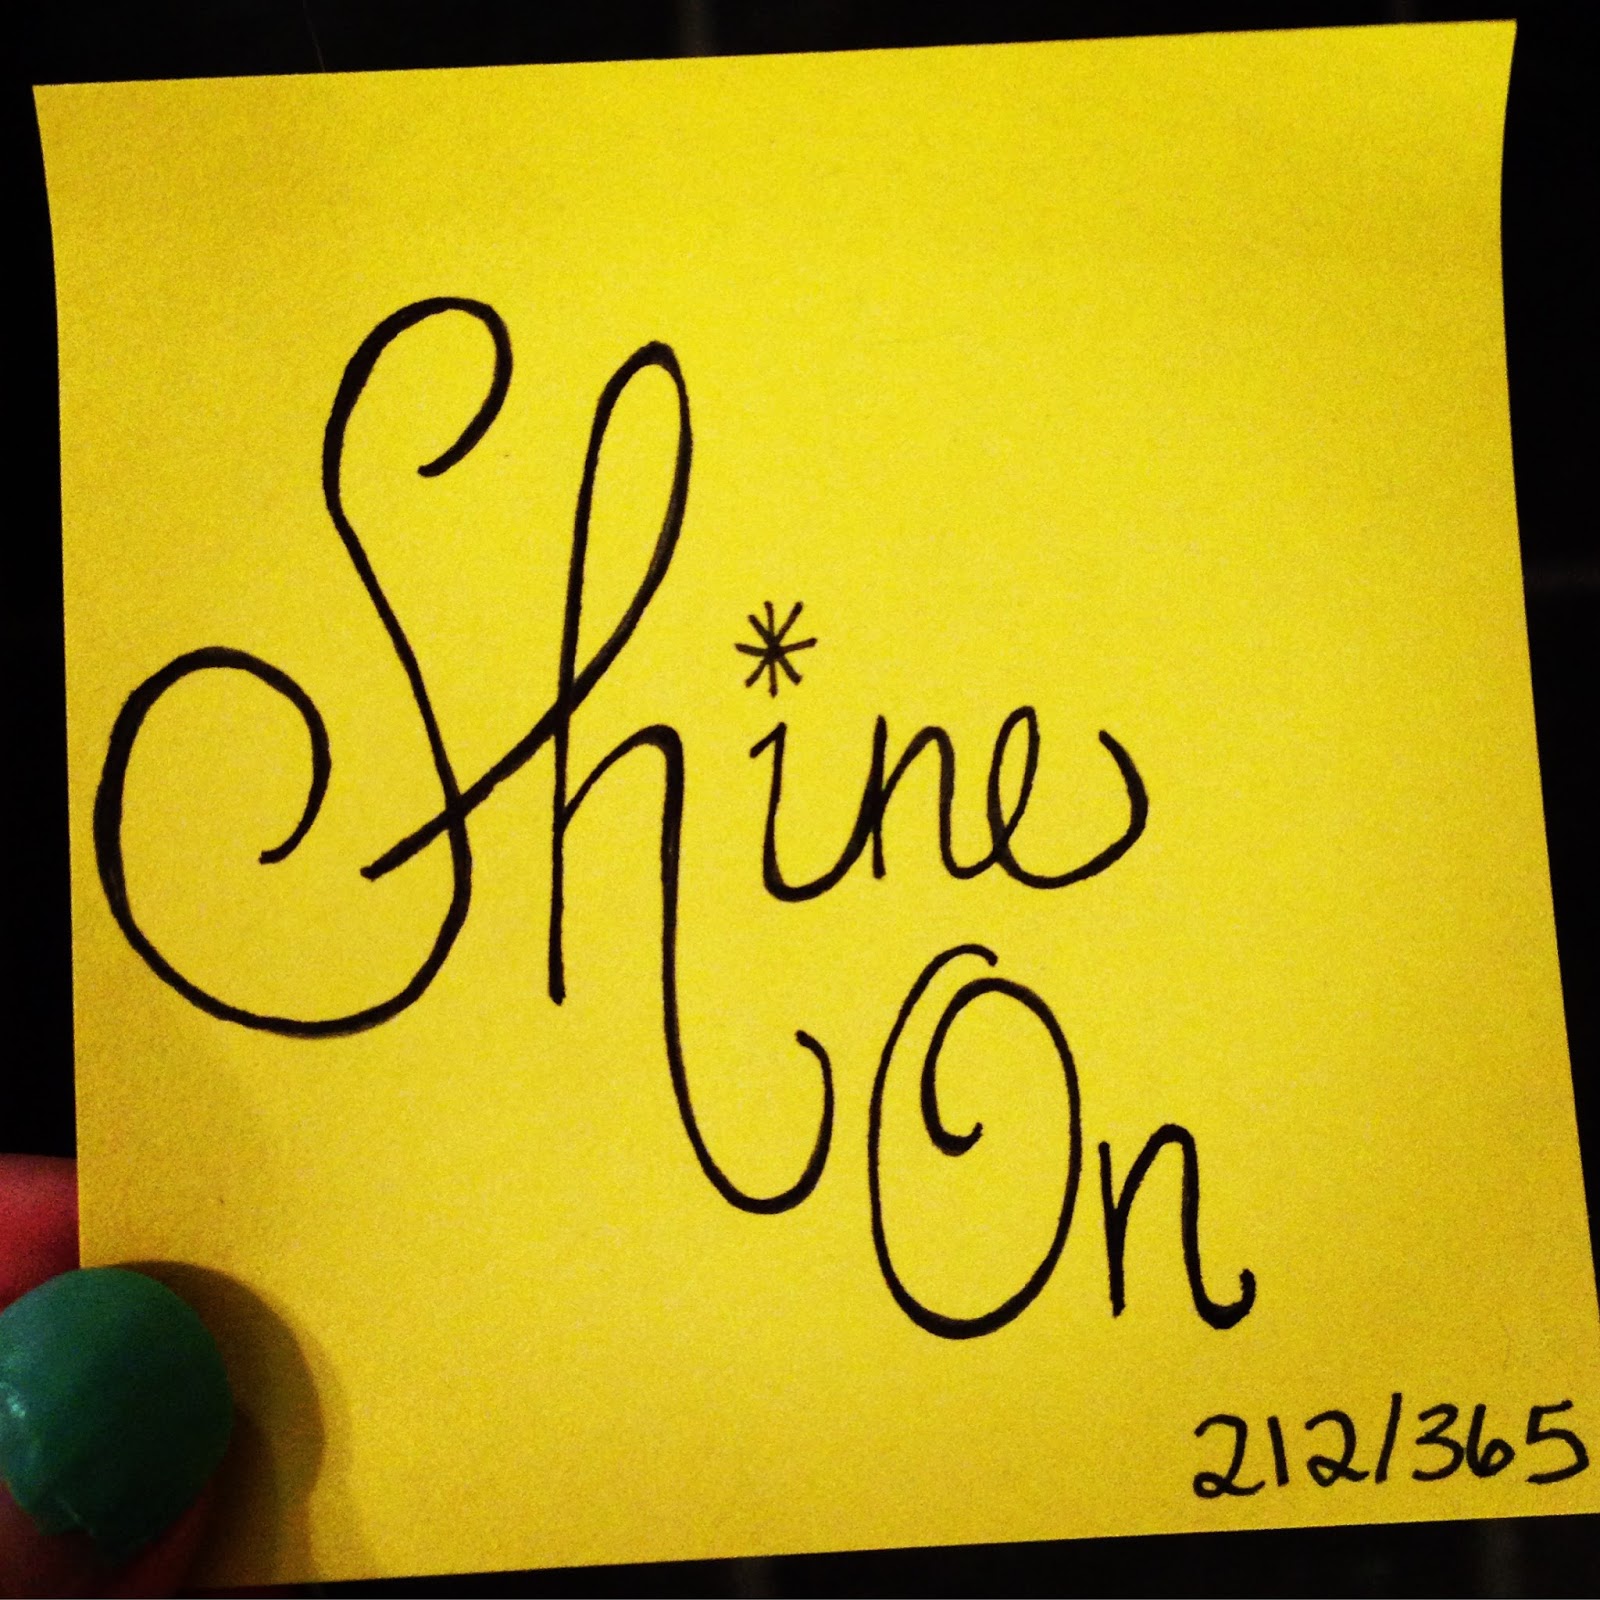 Shine
On
212/365